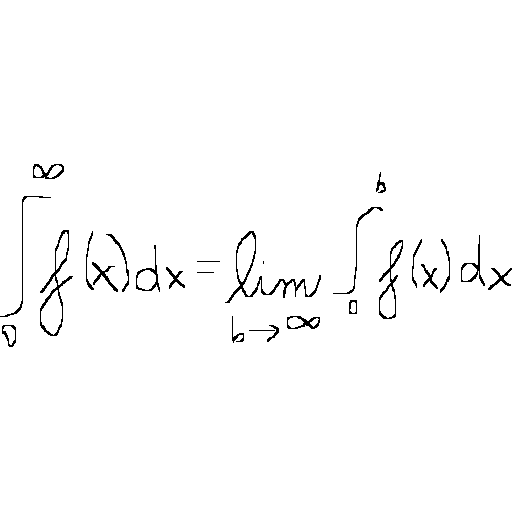 \int_0^\infty f(x)dx = \lim_{b \to \infty} \int_0^b f(x)dx